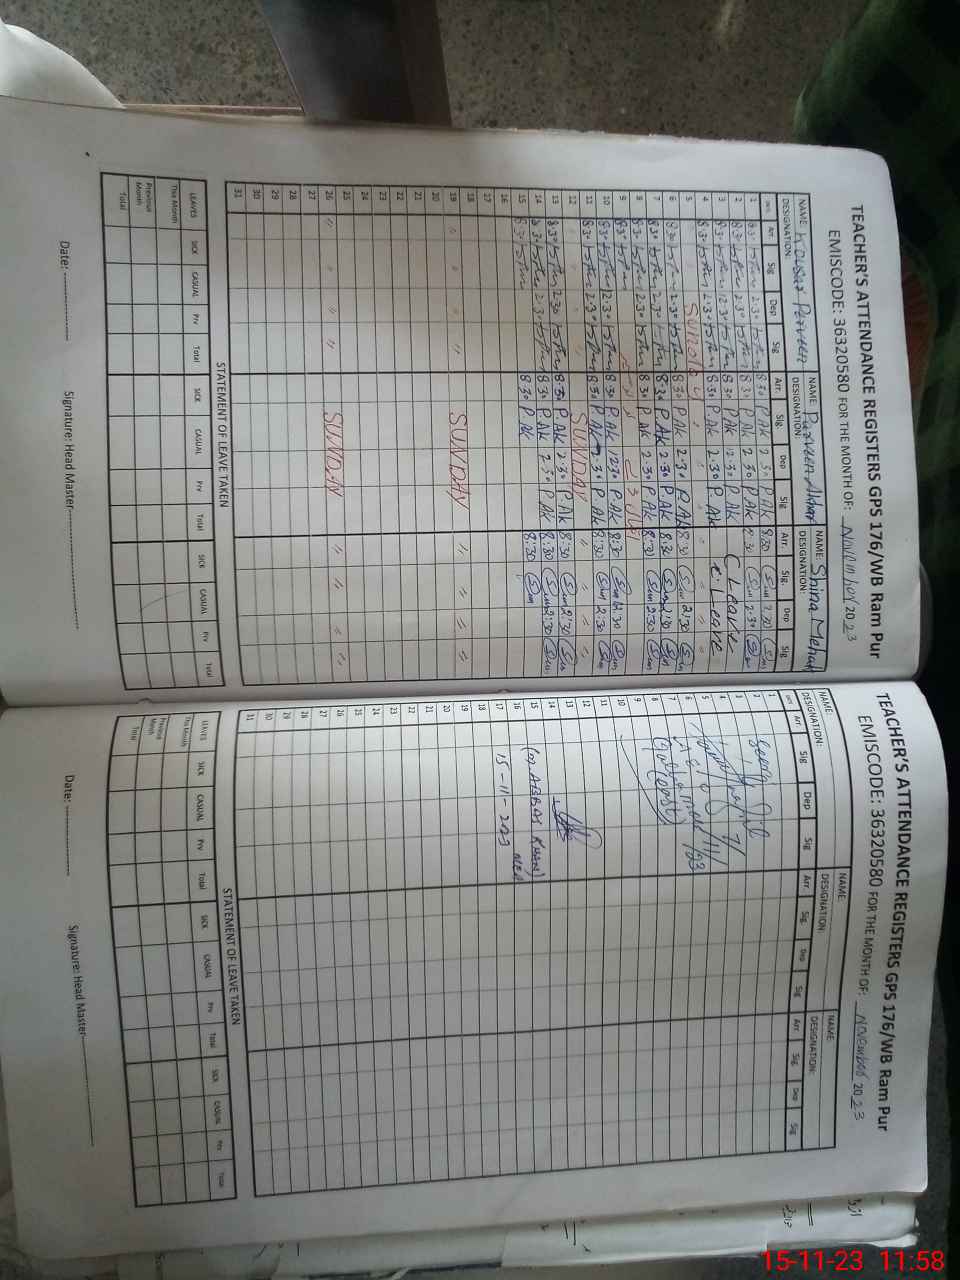 TEACHER'S ATTENDANCE REGISTERS GPS 176/WB Ram Pur
EMISCODE: 36320580 FOR THE MONTH OF: November 2023
NAME: Kousar Perveen NAME: Purveen Akhar NAME: Shina Mehak
DESIGNATION: DESIGNATION: DESIGNATION:
Arr. Sig Dep Sig Arr. Sig. Dep Sig Arr. Sig. Dep Sig
1 8:30 2:30 8:30 P.Ak 2:30 P.Ak 8:30 2:30
2 8:30 2:30 8:30 P.Ak 2:30 P.Ak 8:30 2:30
3 8:30 12:30 8:30 P.Ak 12:30 P.Ak C Leave
4 8:30 2:30 8:30 P.Ak 2:30 P.Ak Leave
5 Sunday
6 8:30 2:30 8:30 P.Ak 2:30 P.Ak 8:30 2:30
7 8:30 2:30 8:30 P.Ak 2:30 P.Ak 8:30 2:30
8 8:30 2:30 8:30 P.Ak 2:30 P.Ak 8:30 2:30
9 8:30
10 8:30 12:30 8:30 P.Ak 12:30 P.Ak 8:30 12:30
11 8:30 2:30 8:30 P.Ak 2:30 P.Ak 8:30 2:30
12 SUNDAY
13 8:30 2:30 8:30 P.Ak 2:30 P.Ak 8:30 2:30
14 8:30 2:30 8:30 P.Ak 2:30 P.Ak 8:30 2:30
15 8:30 8:30 P.Ak 8:30
16
17
18
19 SUNDAY
20
21
22
23
24
25
26 SUNDAY
27
28
29
30
31
STATEMENT OF LEAVE TAKEN
LEAVES SICK CASUAL Prv Total SICK CASUAL Prv Total SICK CASUAL Prv Total
This Month
Previous Month
Total
Date: -------------- Signature: Head Master--------------------
TEACHER'S ATTENDANCE REGISTERS GPS 176/WB Ram Pur
EMISCODE: 36320580 FOR THE MONTH OF: November 2023
NAME: NAME: NAME:
DESIGNATION: DESIGNATION: DESIGNATION:
Arr. Sig Dep Sig Arr. Sig. Dep Sig Arr. Sig. Dep Sig
1
2
3
4
5
6
7
8
9
10
11
12
13
14
15 ABBAS KHAN)
16 MEA
17 15-11-2023
18
19
20
21
22
23
24
25
26
27
28
29
30
31
STATEMENT OF LEAVE TAKEN
LEAVES SICK CASUAL Prv Total SICK CASUAL Prv Total SICK CASUAL Prv Total
This Month
Previous Month
Total
Date: -------------- Signature: Head Master--------------------
15-11-23 11:58